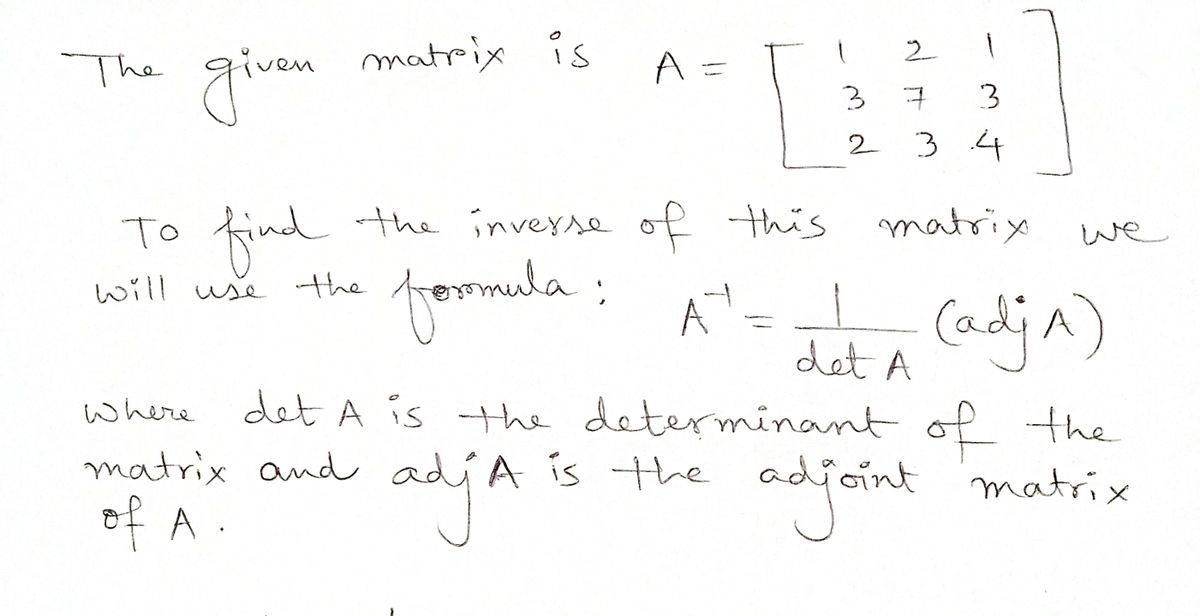 The given matrix is A = [ 1 2 1
3 7 3
2 3 4 ]
To find the inverse of this matrix we
will use the formula : A⁻¹ = 1/det A (adj A)
where det A is the determinant of the
matrix and adj A is the adjoint matrix
of A .